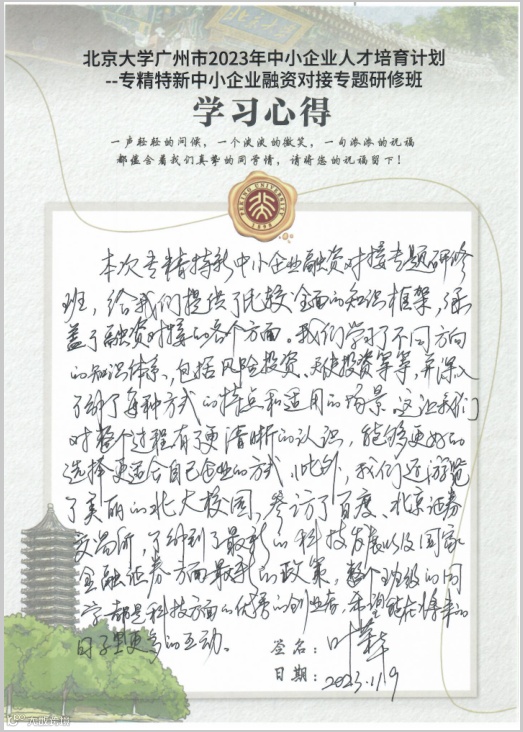 北京大学广州市2023年中小企业人才培育计划
--专精特新中小企业融资对接专题研修班
学习心得
一声轻轻的问候，一个淡淡的微笑，一句浓浓的祝福
都蕴含着我们真挚的同学情，请将您的祝福留下！
PEKING UNIVERSITY
1898
本次专精特新中小企业融资对接专题研修
班，给我们提供了比较全面的知识框架，涵
盖了融资对接的各个方面。我们学习了不同方向
的知识体系，包括风险投资、天使投资等等，并深入
了解了每种方式的特点和适用的场景。这让我们
对整个过程有了更清晰的认识，能够更好的
选择更适合自己企业的方式。此外，我们还游览
了美丽的北大校园，参访了百度、北京证券
交易所，了解到了最新的科技发展以及国家
金融证券方面最新的政策，整个班级的同
学都是科技方面的优秀的创业者，希望能在将来的
日子里更多的互动。
签名：叶
日期：2023.11.9